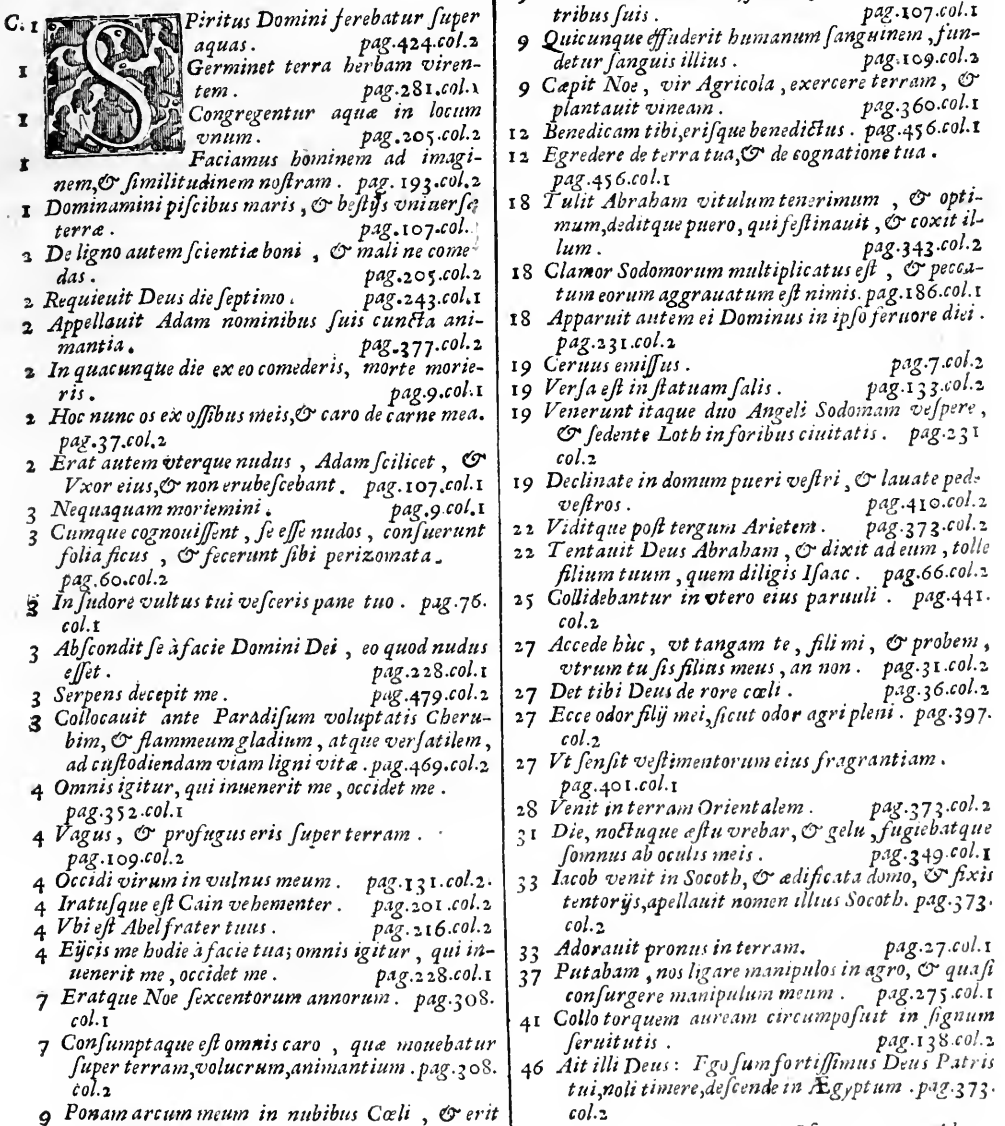 C. 1 SPiritus Domini ferebatur ſuper
aquas. pag.424.col.2
1 Germinet terra herbam viren-
tem. pag.281.col.1
1 Congregentur aquæ in locum
vnum. pag.205.col.2
1 Faciamus hominem ad imagi-
nem,& ſimilitudinem noſtram. pag. 193.col.2
1 Dominamini piſcibus maris, & beſtijs vniuerſæ
terræ. pag.107.col.
2 De ligno autem ſcientiæ boni, & mali ne come-
das. pag.205.col.2
2 Requieuit Deus die ſeptimo. pag.243.col.1
2 Appellauit Adam nominibus ſuis cuncta ani-
mantia. pag.377.col.2
2 In quacunque die ex eo comederis, morte morie-
ris. pag.9.col.1
2 Hoc nunc os ex oſſibus meis,& caro de carne mea.
pag.37.col.2
2 Erat autem vterque nudus, Adam ſcilicet, &
Vxor eius,& non erubeſcebant. pag.107.col.1
3 Nequaquam moriemini. pag.9.col.1
3 Cumque cognouiſſent, ſe eſſe nudos, conſuerunt
folia ficus, & fecerunt ſibi perizomata.
pag.60.col.2
3 In ſudore vultus tui veſceris pane tuo. pag.76.
col.1
3 Abſcondit ſe à facie Domini Dei, eo quod nudus
eſſet. pag.228.col.1
3 Serpens decepit me. pag.479.col.2
3 Collocauit ante Paradiſum voluptatis Cheru-
bim, & flammeum gladium, atque verſatilem,
ad cuſtodiendam viam ligni vitæ. pag.469.col.2
4 Omnis igitur, qui inuenerit me, occidet me.
pag.352.col.1
4 Vagus, & profugus eris ſuper terram.
pag.109.col.2
4 Occidi virum in vulnus meum. pag.131.col.2.
4 Iratuſque eſt Cain vehementer. pag.201.col.2
4 Vbi eſt Abel frater tuus. pag.216.col.2
4 Eÿcis me hodie à facie tua; omnis igitur, qui in-
uenerit me, occidet me. pag.228.col.1
7 Eratque Noe ſexcentorum annorum. pag.308.
col.1
7 Conſumptaque eſt omnis caro, quæ mouebatur
ſuper terram,volucrum,animantium. pag.308.
col.2
9 Ponam arcum meum in nubibus Cœli, & erit
tribus ſuis. pag.107.col.1
9 Quicunque effuderit humanum ſanguinem, fun-
detur ſanguis illius. pag.109.col.2
9 Cæpit Noe, vir Agricola, exercere terram, &
plantauit vineam. pag.360.col.1
12 Benedicam tibi,eriſque benedictus. pag.456.col.1
12 Egredere de terra tua,& de cognatione tua.
pag.456.col.1
18 Tulit Abraham vitulum tenerimum, & opti-
mum,deditque puero, qui feſtinauit, & coxit il-
lum. pag.343.col.2
18 Clamor Sodomorum multiplicatus eſt, & pecca-
tum eorum aggrauatum eſt nimis. pag.186.col.1
18 Apparuit autem ei Dominus in ipſo feruore diei.
pag.231.col.2
19 Ceruus emiſſus. pag.7.col.2
19 Verſa eſt in ſtatuam ſalis. pag.133.col.2
19 Venerunt itaque duo Angeli Sodomam veſpere,
& ſedente Loth in foribus ciuitatis. pag.231
col.2
19 Declinate in domum pueri veſtri, & lauate pede
veſtros. pag.410.col.2
22 Viditque poſt tergum Arietem. pag.373.col.2
22 Tentauit Deus Abraham, & dixit ad eum, tolle
filium tuum, quem diligis Iſaac. pag.66.col.2
25 Collidebantur in vtero eius paruuli. pag.441.
col.2
27 Accede hùc, vt tangam te, fili mi, & probem,
vtrum tu ſis filius meus, an non. pag.31.col.2
27 Det tibi Deus de rore cœli. pag.36.col.2
27 Ecce odor filij mei,ſicut odor agri pleni. pag.397.
col.2
27 Vt ſenſit veſtimentorum eius fragrantiam.
pag.401.col.1
28 Venit in terram Orientalem. pag.373.col.2
31 Die, noctuque æſtu vrebar, & gelu, fugiebatque
ſomnus ab oculis meis. pag.349.col.1
33 Iacob venit in Socoth, & ædificata domo, & fixis
tentorijs,apellauit nomen illius Socoth. pag.373.
col.2
33 Adorauit pronus in terram. pag.27.col.1
37 Putabam, nos ligare manipulos in agro, & quaſi
conſurgere manipulum meum. pag.275.col.1
41 Collo torquem auream circumpoſuit in ſignum
ſeruitutis. pag.138.col.2
46 Ait illi Deus: Ego ſum fortiſſimus Deus Patris
tui,noli timere,deſcende in Ægyptum. pag.373.
col.2